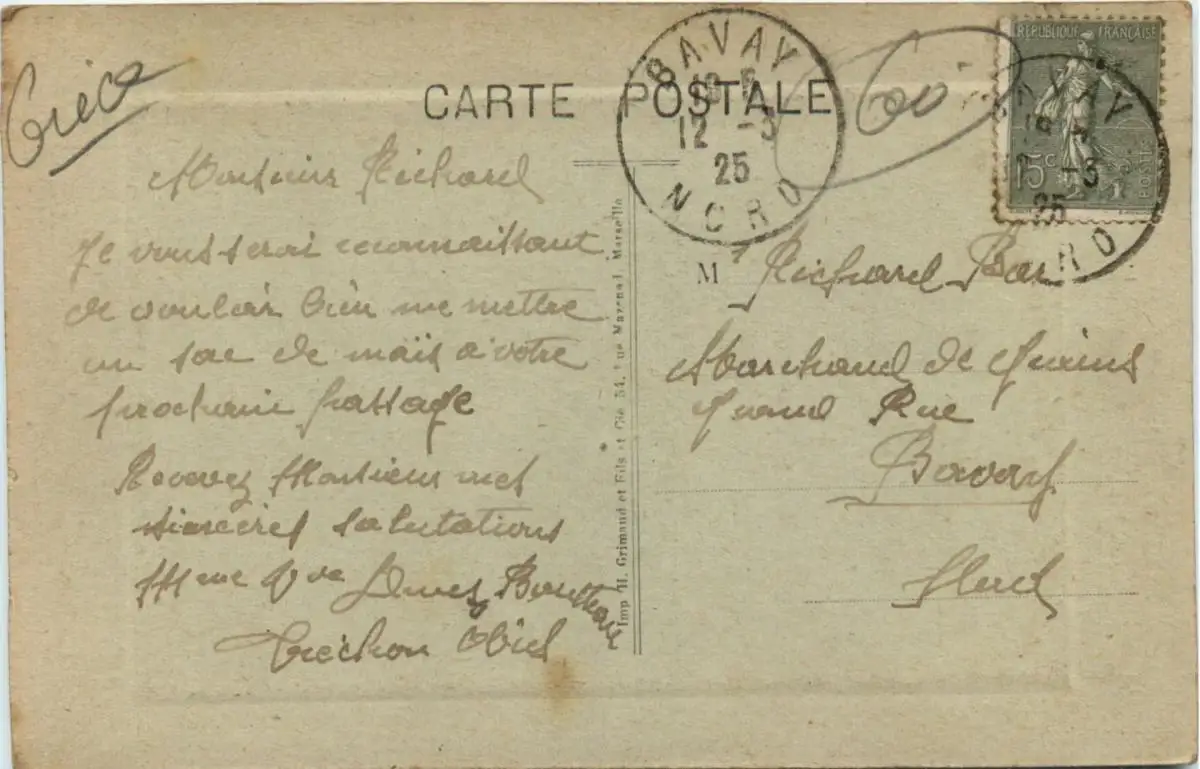 CARTE POSTALE
BAVAY
12 -3
25
NORD
RÉPUBLIQUE FRANÇAISE
15c
POSTES
AVAY
-3
25
RD
Monsieur Richard
Je vous serai reconnaissant
de vouloir bien me mettre
un sac de maïs a votre
prochain passage
Recevez Monsieur mes
sincères salutations
Mme Vve
Imp. H. Grimaud et Fils et Cie 54, rue Mazenod, Marseille
M r Richard Bar
Marchand de Grains
Grand Rue
Bavay
Nord